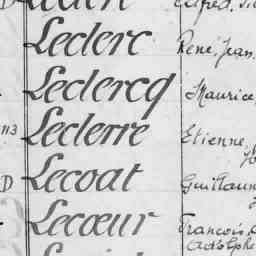 Leclerc René, Jean
Leclercq Maurice,
113 Leclerre Etienne,
D Lecoat Guillaum
Lecœur François,
Adolphe